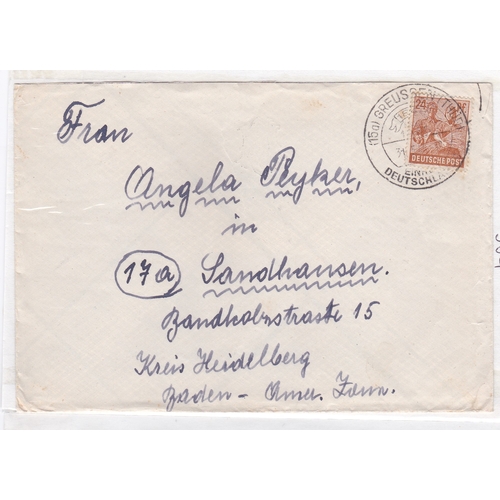 Frau
Angela Peyker,
in
17a Sandhausen.
Bandholzstraste 15
Kreis Heidelberg
Baden - Amer. Zonn.
(15a) GREUSSEN
24
DEUTSCHE POST
DEUTSCHLA